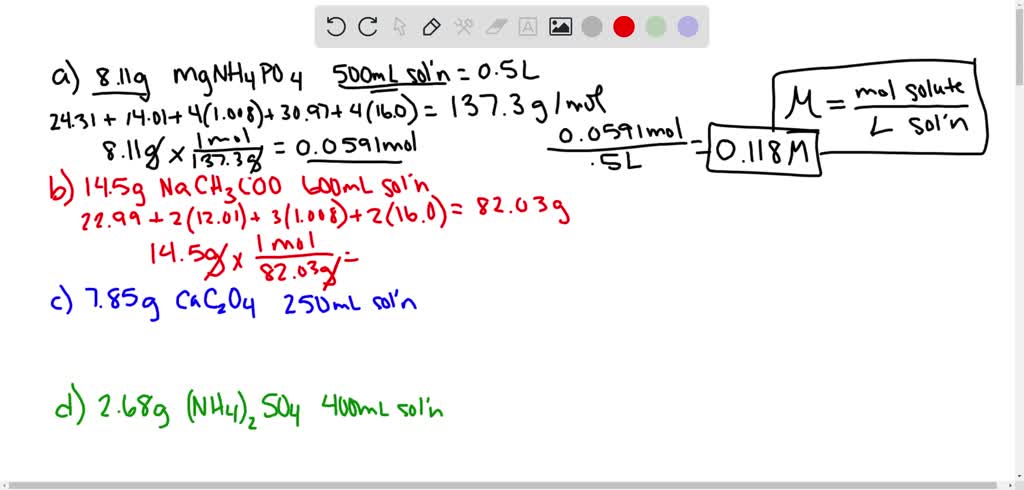 a) 8.11g MgNH4PO4 500mL sol'n = 0.5L
24.31 + 14.01 + 4(1.008) + 30.97 + 4(16.0) = 137.3 g/mol
8.11g × 1mol/137.3g = 0.0591mol
0.0591mol/.5L = 0.118M
M = mol solute/L sol'n
b) 14.5g NaCH3COO 600mL sol'n
22.99 + 2(12.01) + 3(1.008) + 2(16.0) = 82.03g
14.5g × 1mol/82.03g =
c) 7.85g CaC2O4 250mL sol'n
d) 2.68g (NH4)2 SO4 400mL sol'n